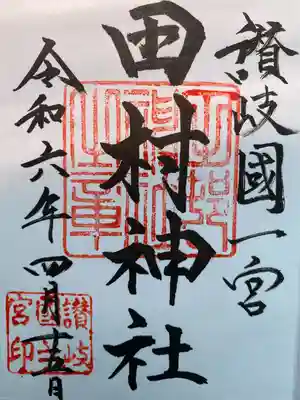 讃岐國一宮
田村神社
令和六年四月十五日
讃岐國一宮印